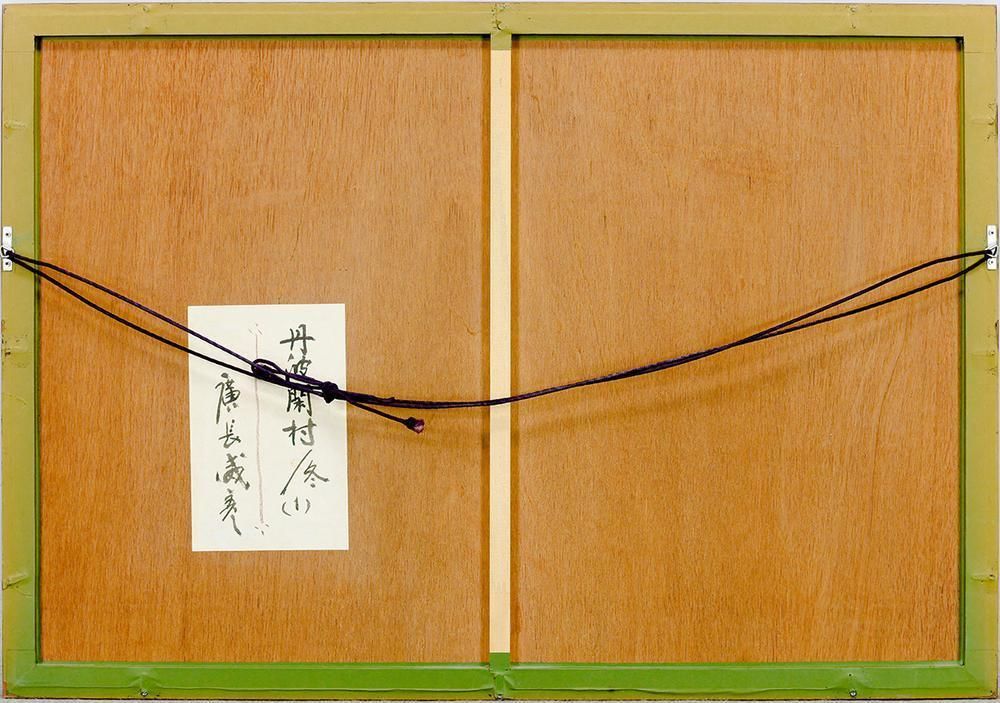 丹波関村ノ冬(1)
廣長威彦